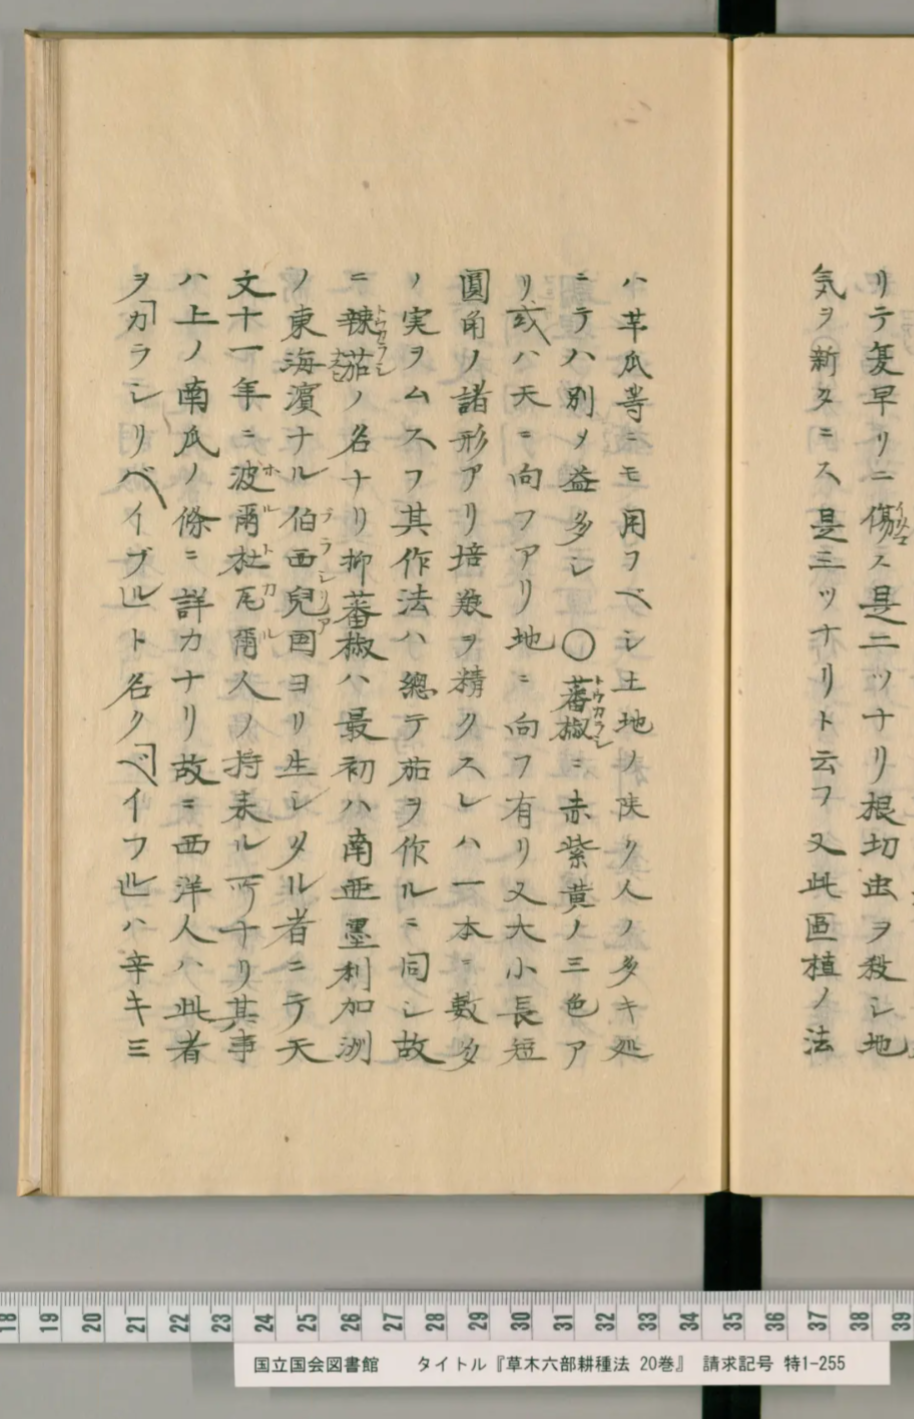 リテ复早リニ傷ス是二ツナリ根切虫ヲ殺シ地
気ヲ新タニス是三ツナリト云フ又此区植ノ法
ハ芋瓜等ニモ用フベシ土地ノ陜ク人ノ多キ処
ニテハ別メ益多シ〇蕃椒トウカラシニ赤紫黄ノ三色ア
リ或ハ天ニ向フアリ地ニ向フ有リ又大小長短
圓角ノ諸形アリ培養ヲ精クスレハ一本ニ數タ
ノ実ヲムスフ其作法ハ總テ茄ヲ作ルニ同シ故
ニ辣茄トウカラシノ名ナリ抑蕃椒ハ最初ハ南亜墨利加洲
ノ東海濱ナル伯西兒国ブラシリアヨリ生シタル者ニテ天
文十一年ニ波爾杜瓦爾ホルトカル人ノ持来ル所ナリ其事
ハ上ノ南瓜ノ條ニ詳カナリ故ニ西洋人ハ此者
ヲ「カラシリベイブル」ト名ク「ベイフル」ハ辛キ三
18 19 20 21 22 23 24 25 26 27 28 29 30 31 32 33 34 35 36 37 38 39
国立国会図書館 タイトル『草木六部耕種法 20巻』 請求記号 特1-255